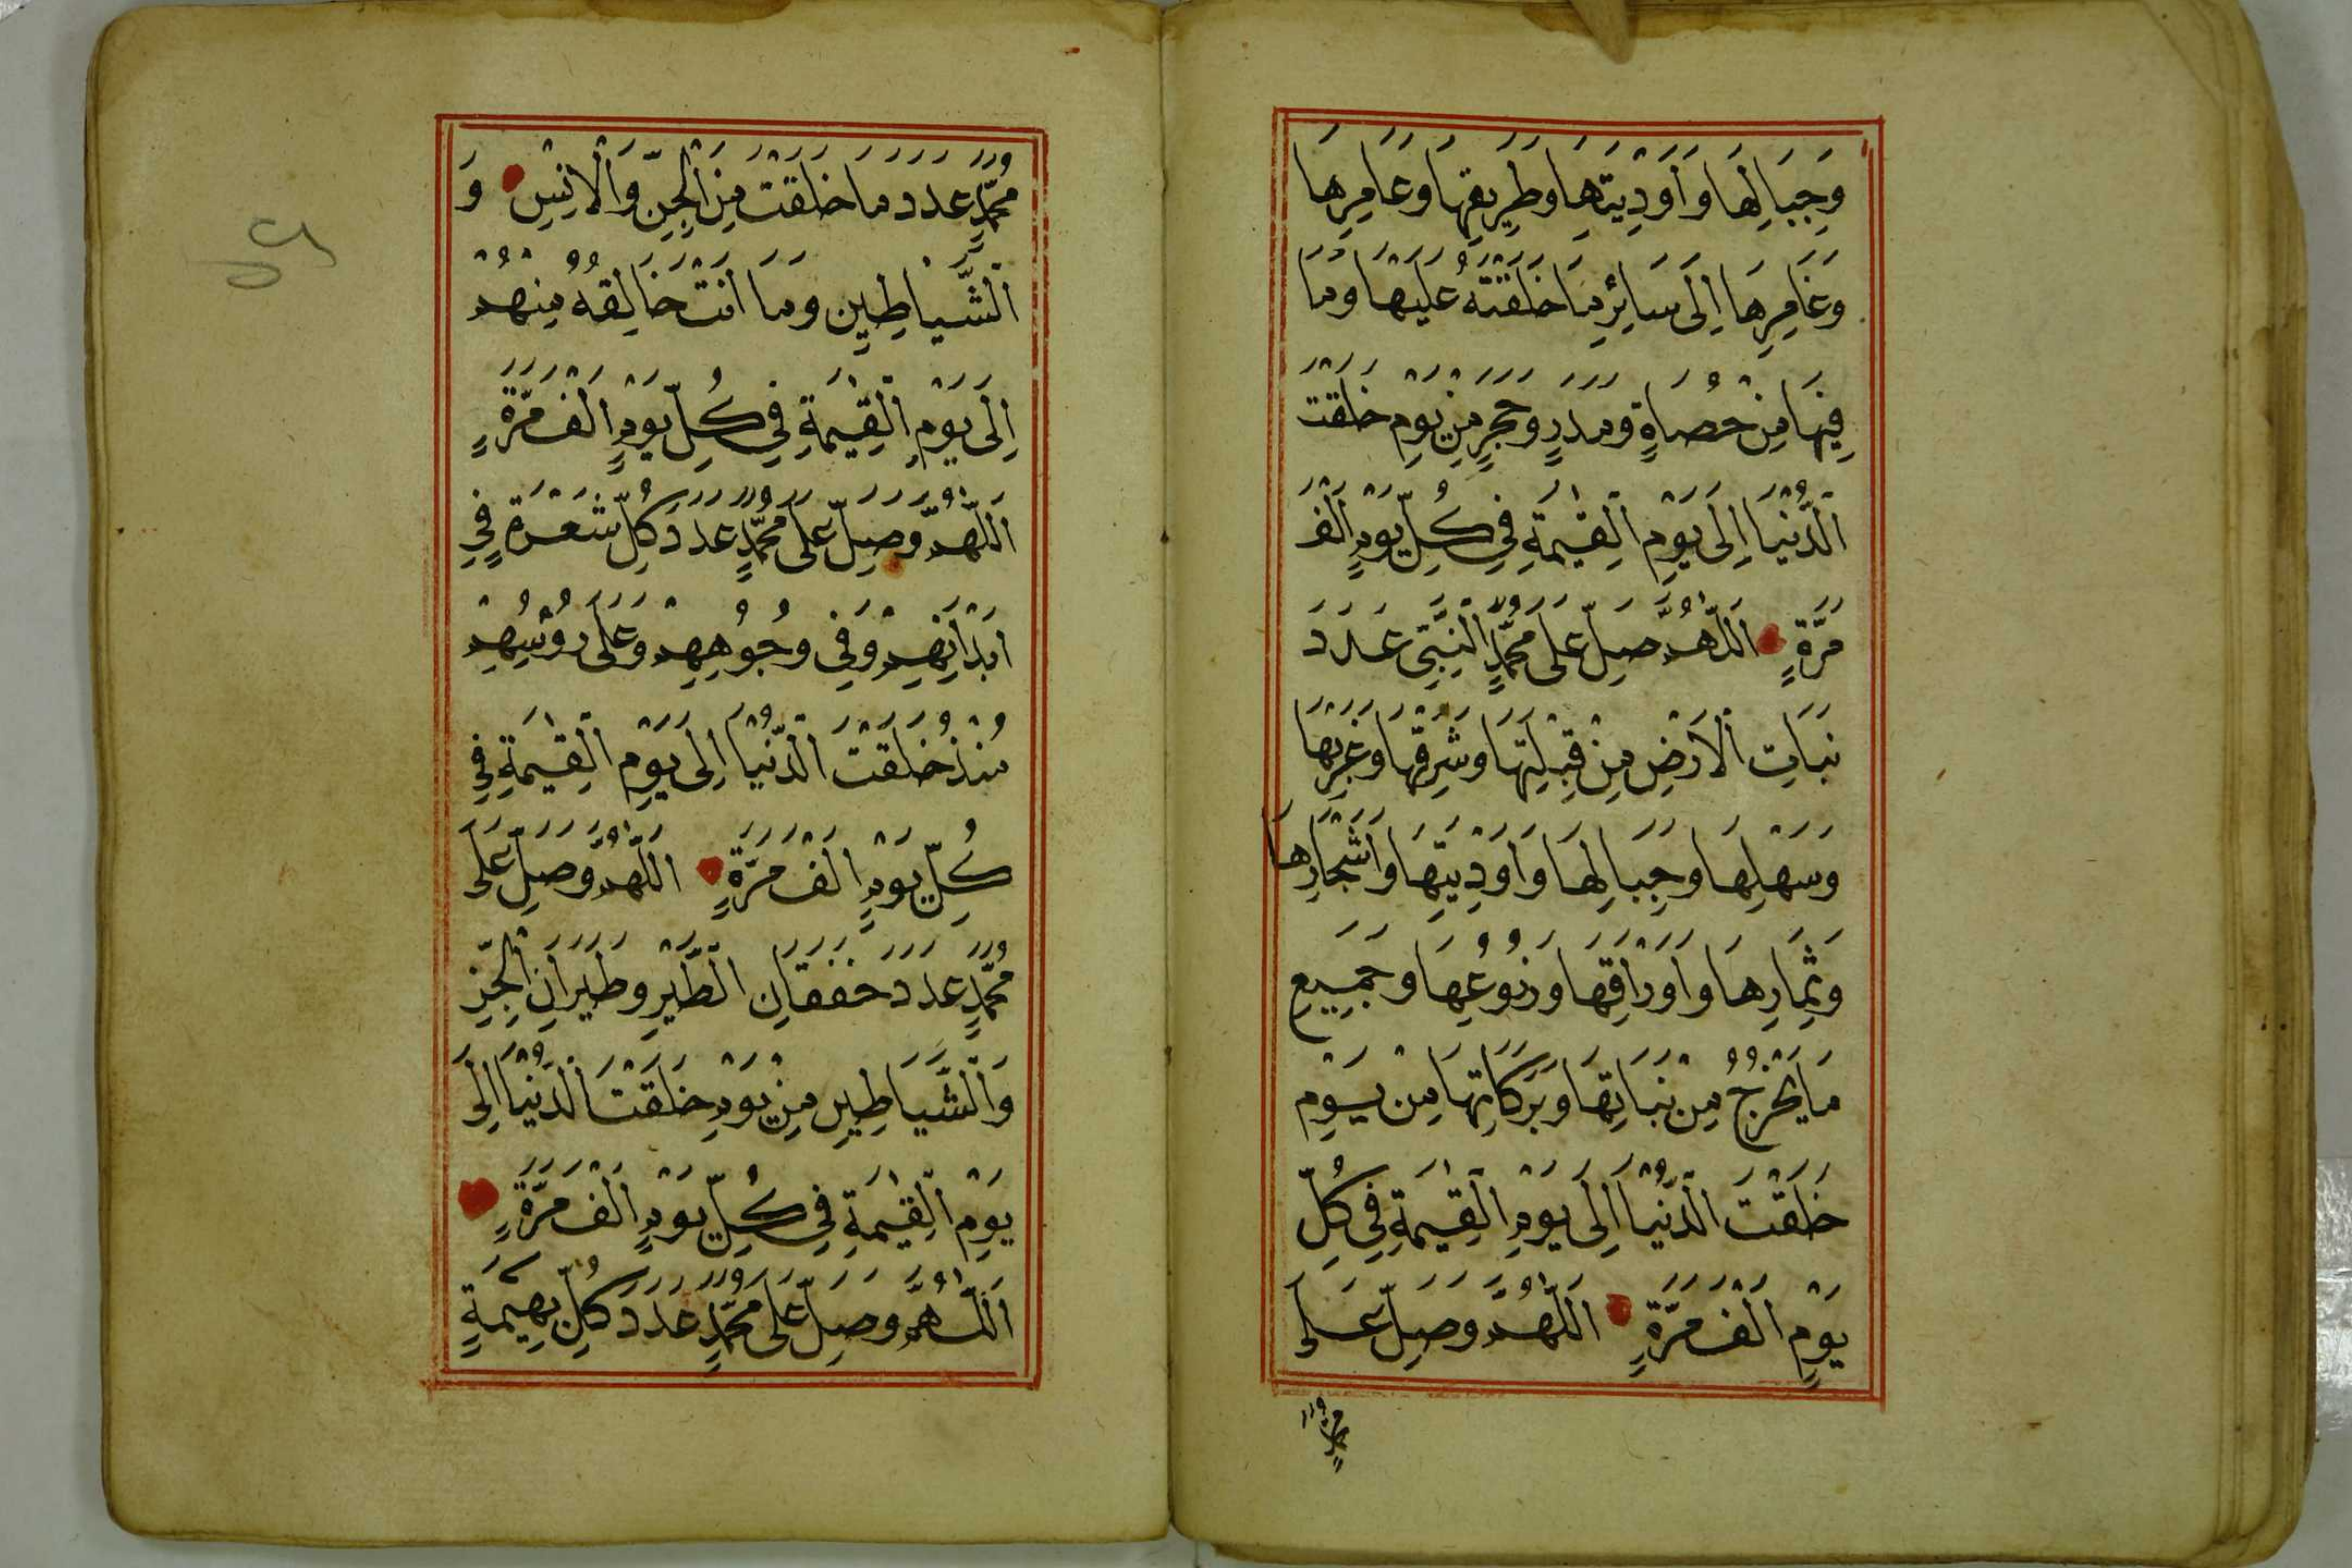 وَجِبَالِهَا وَاَوْدِيَتِهَا وَطَرِيقِهَا وَعَامِرِهَا
وَغَامِرِهَا اِلَى سَائِرِ مَا خَلَقْتَهُ عَلَيْهَا وَمَا
فِيهَا مِنْ حَصَاةٍ وَمَدَرٍ وَحَجَرٍ مِنْ يَوْمِ خَلَقْتَ
الدُّنْيَا اِلَى يَوْمِ الْقِيٰمَةِ فِي كُلِّ يَوْمٍ اَلْفَ
مَرَّةٍ اَللّٰهُمَّ صَلِّ عَلَى مُحَمَّدٍ النَّبِيِّ عَدَدَ
نَبَاتِ الْاَرْضِ مِنْ قِبْلَتِهَا وَشَرْقِهَا وَغَرْبِهَا
وَسَهْلِهَا وَجِبَالِهَا وَاَوْدِيَتِهَا وَاَشْجَارِهَا
وَثِمَارِهَا وَاَوْرَاقِهَا وَزُرُوعِهَا وَجَمِيعِ
مَا يَخْرُجُ مِنْ نَبَاتِهَا وَبَرَكَاتِهَا مِنْ يَوْمِ
خَلَقْتَ الدُّنْيَا اِلَى يَوْمِ الْقِيٰمَةِ فِي كُلِّ
يَوْمٍ اَلْفَ مَرَّةٍ اَللّٰهُمَّ وَصَلِّ عَلَى
مُحَمَّدٍ
مُحَمَّدٍ عَدَدَ مَا خَلَقْتَ مِنَ الْجِنِّ وَالْاِنْسِ وَ
الشَّيَاطِينِ وَمَا اَنْتَ خَالِقُهُ مِنْهُمْ
اِلَى يَوْمِ الْقِيٰمَةِ فِي كُلِّ يَوْمٍ اَلْفَ مَرَّةٍ
اَللّٰهُمَّ وَصَلِّ عَلَى مُحَمَّدٍ عَدَدَ كُلِّ شَعْرَةٍ فِي
اَبْدَانِهِمْ وَفِي وُجُوهِهِمْ وَعَلَى رُؤُسِهِمْ
مُنْذُ خَلَقْتَ الدُّنْيَا اِلَى يَوْمِ الْقِيٰمَةِ فِي
كُلِّ يَوْمٍ اَلْفَ مَرَّةٍ اَللّٰهُمَّ وَصَلِّ عَلَى
مُحَمَّدٍ عَدَدَ خَفَقَانِ الطَّيْرِ وَطَيَرَانِ الْجِنِّ
وَالشَّيَاطِينِ مِنْ يَوْمِ خَلَقْتَ الدُّنْيَا اِلَى
يَوْمِ الْقِيٰمَةِ فِي كُلِّ يَوْمٍ اَلْفَ مَرَّةٍ
اَللّٰهُمَّ وَصَلِّ عَلَى مُحَمَّدٍ عَدَدَ كُلِّ بَهِيمَةٍ